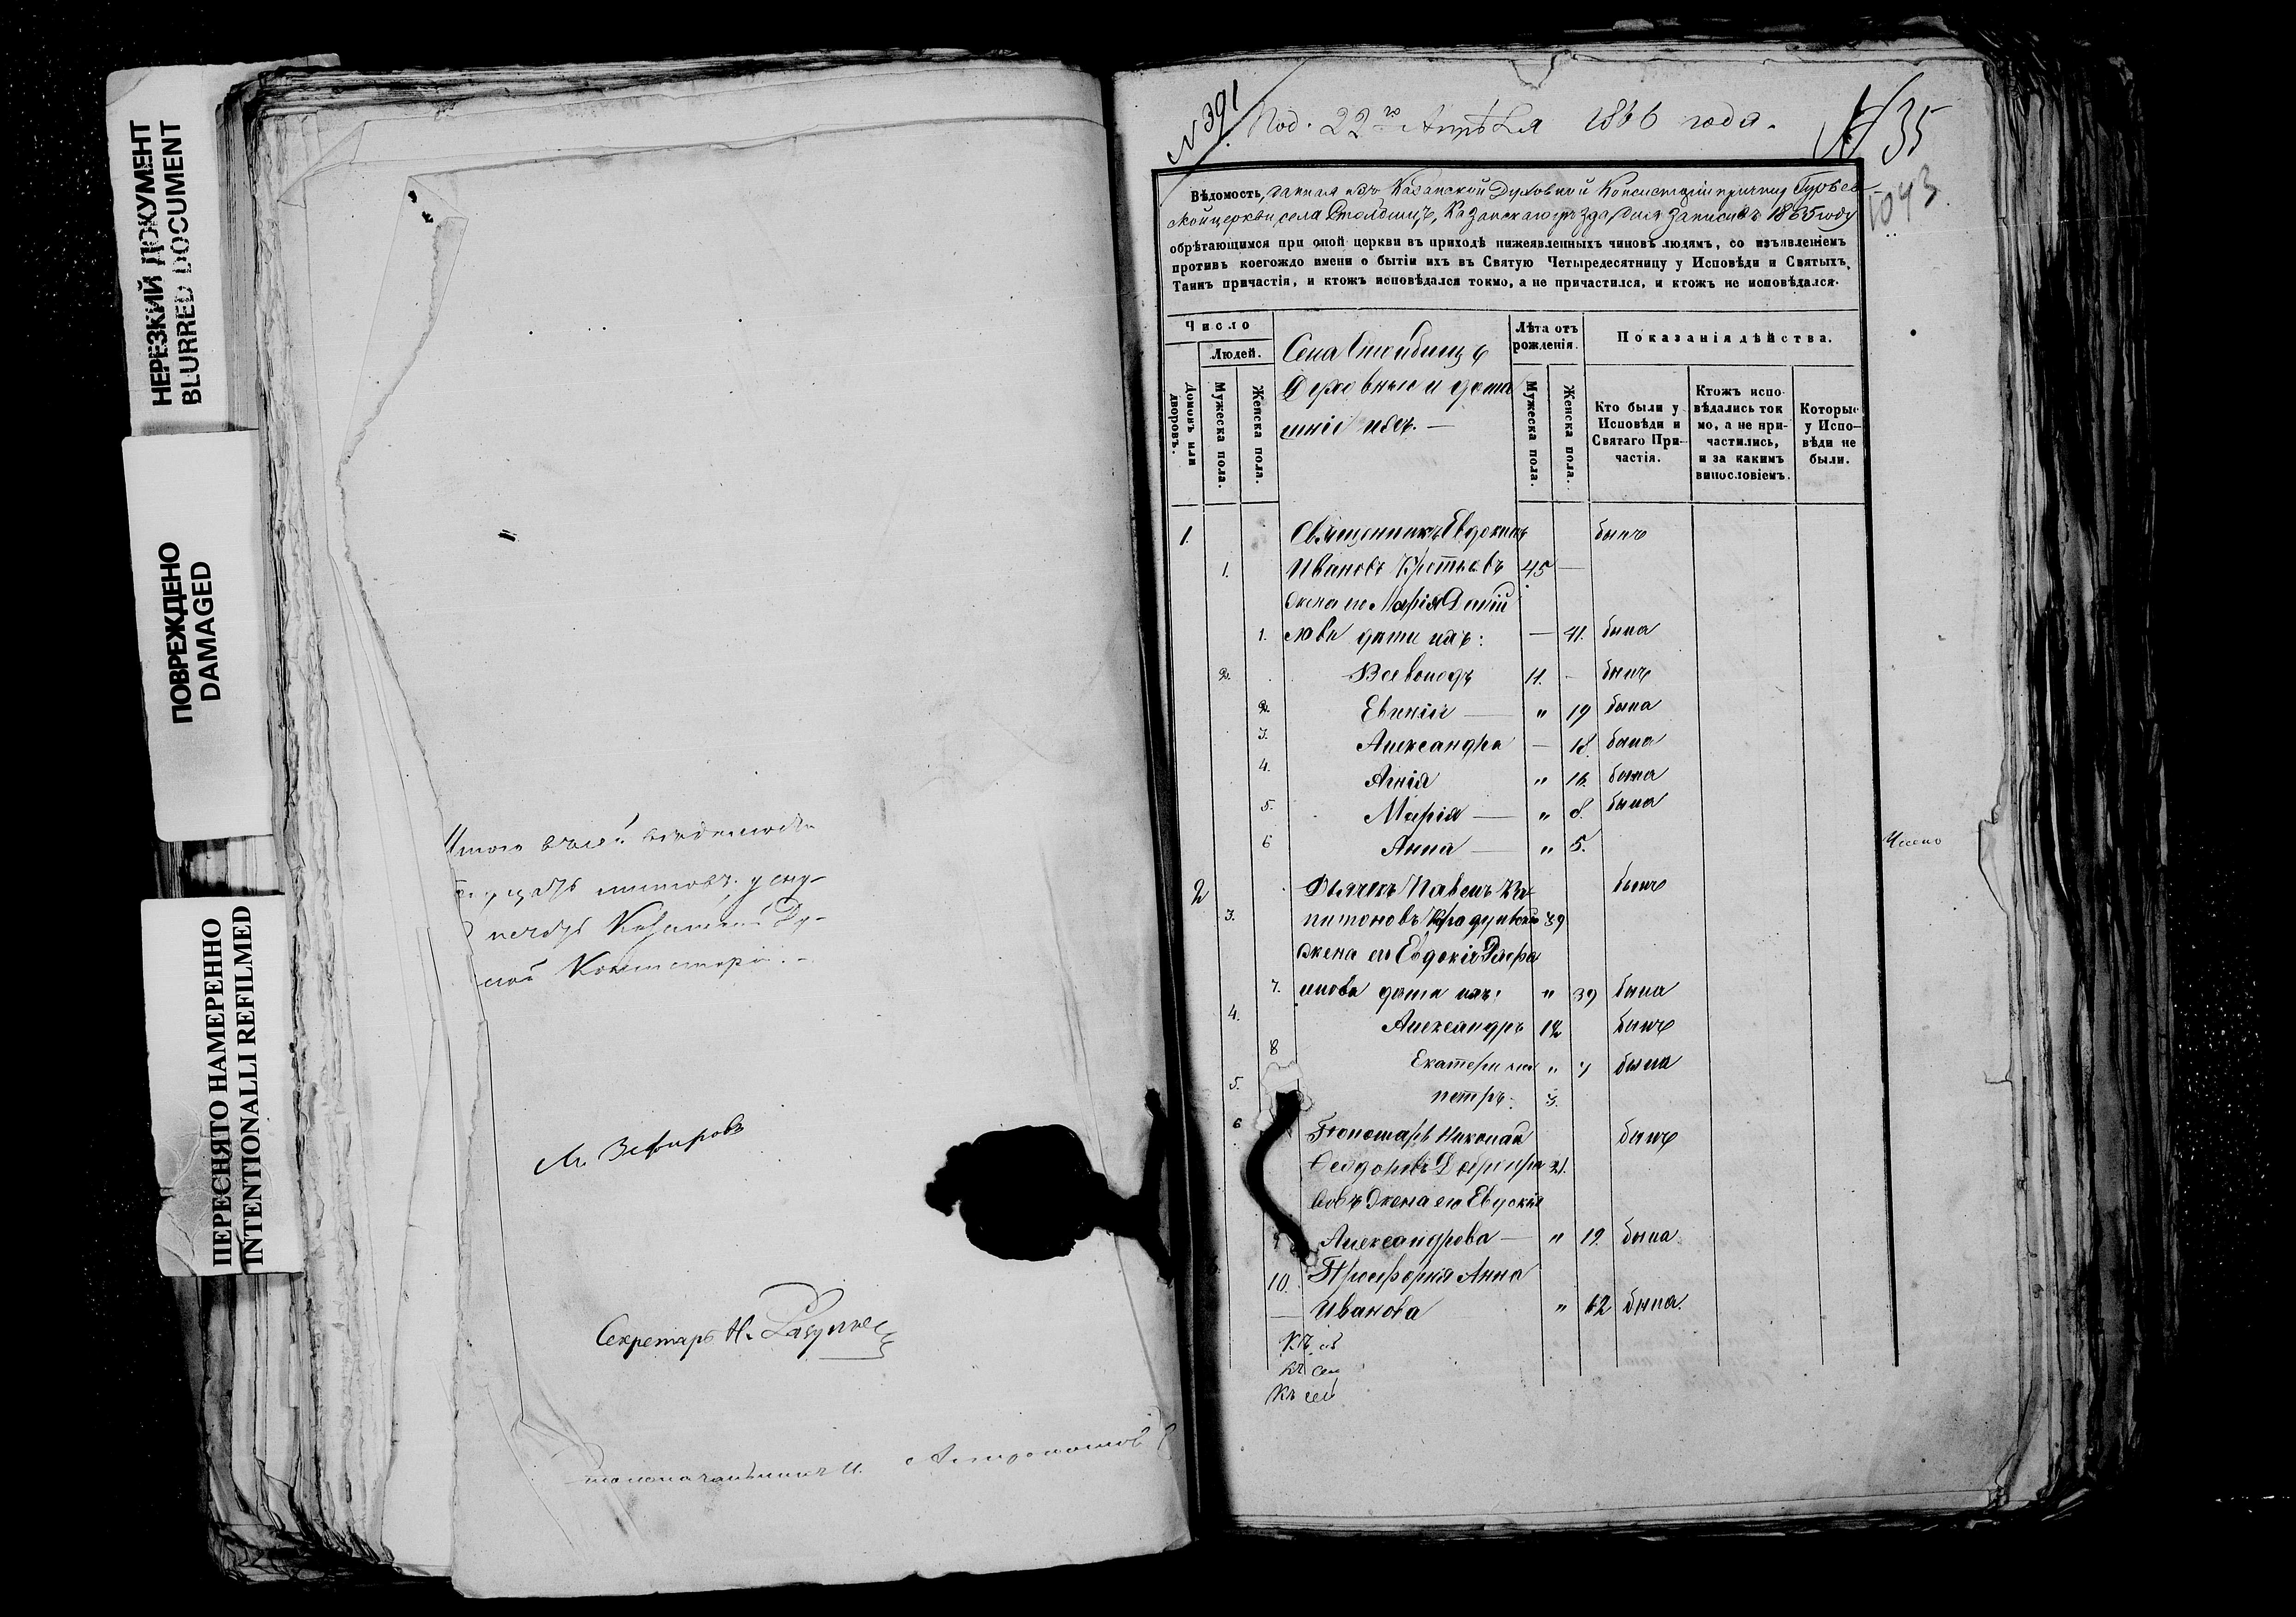 НЕРЕЗКИЙ ДОКУМЕНТ
BLURRED DOCUMENT
ПОВРЕЖДЕНО
DAMAGED
ПЕРЕСНЯТО НАМЕРЕННО
INTENTIONALLI REFILMED
Итого въ сей
листовъ, у сну-
печать Казанской Ду-
ской Консисторіи. –
Секретарь Н.
столоначальникъ И.
N 391
Под. 22го Апрѣля 1866 года.
N 35
1043
Вѣдомость, данная изъ Казанской Духовной Консисторіи причту Гурьев-
ской церкви села Столбищъ, Казанскаго уѣзда, для записи въ 1865 году
обрѣтающимся при оной церкви въ приходѣ нижеявленныхъ чиновъ людямъ, со изъявленіемъ
противъ коегождо имени о бытіи ихъ въ Святую Четыредесятницу у Исповѣди и Святыхъ
Таинъ причастія, и ктожъ исповѣдался токмо, а не причастился, и ктожъ не исповѣдался.
Число
Людей.
Домовъ или дворовъ.
Мужеска пола.
Женска пола.
Села Столбищъ
Духовные и дома
шніе ихъ. —
Лѣта отъ рожденія.
Мужеска пола.
Женска пола.
Показанія дѣйства.
Кто были у Исповѣди и Святаго При-частія.
Ктожъ испо-вѣдались ток мо, а не при-частились, и за какимъ винословіемъ.
Которые у Испо-вѣди не были.
1. Священникъ Евдокимъ былъ
1. Ивановъ 45 —
Жена его Марія
1. дѣти ихъ: — 41. была
2. Всеволодъ 11. — былъ
2. Евгенія — " 19 была
3. Александра — 18. была
4. Агнія " 16. была
5. Марія — " 8. была
6 Анна — " 5.
Число
2 Дьячекъ Павелъ Ка- былъ
3. питоновъ 39
жена его Евдокія
7. дѣти ихъ: " 39 была
4. Александръ 12 былъ
8 Екатерина " 7 была
5. Петръ. 3.
6 Пономарь Николай былъ
Ѳеодоровъ 21.
Жена его Евдокія
9 Александрова — " 19. была
10. Просфорня Анна
— Иванова " 62 была.
Къ
Къ сей
Къ сей